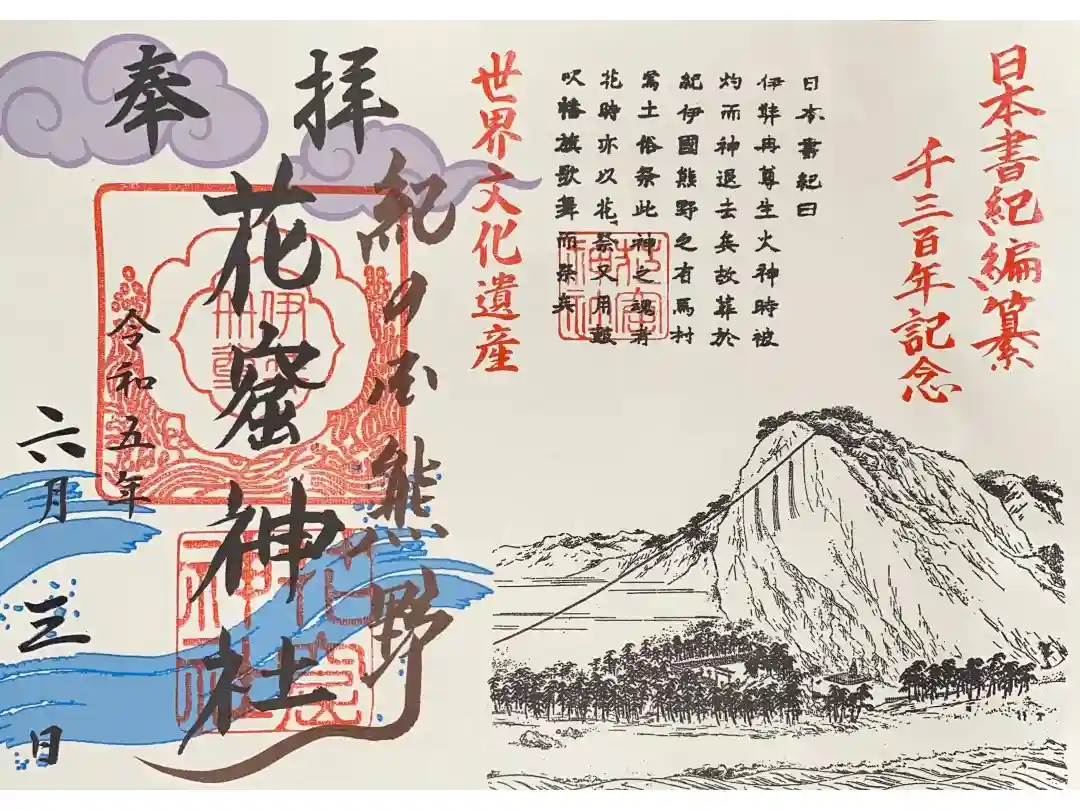 日本書紀編纂
千三百年記念
日本書紀曰
伊弉冉尊生火神時被
灼而神退去矣故葬於
紀伊國熊野之有馬村
焉土俗祭此神之魂者
花時亦以花祭又用鼓
吹幡旗歌舞而祭矣
花窟神社
世界文化遺産
奉拝
紀の国熊野
花窟神社
伊弉冉尊
花窟神社
令和五年
六月三日